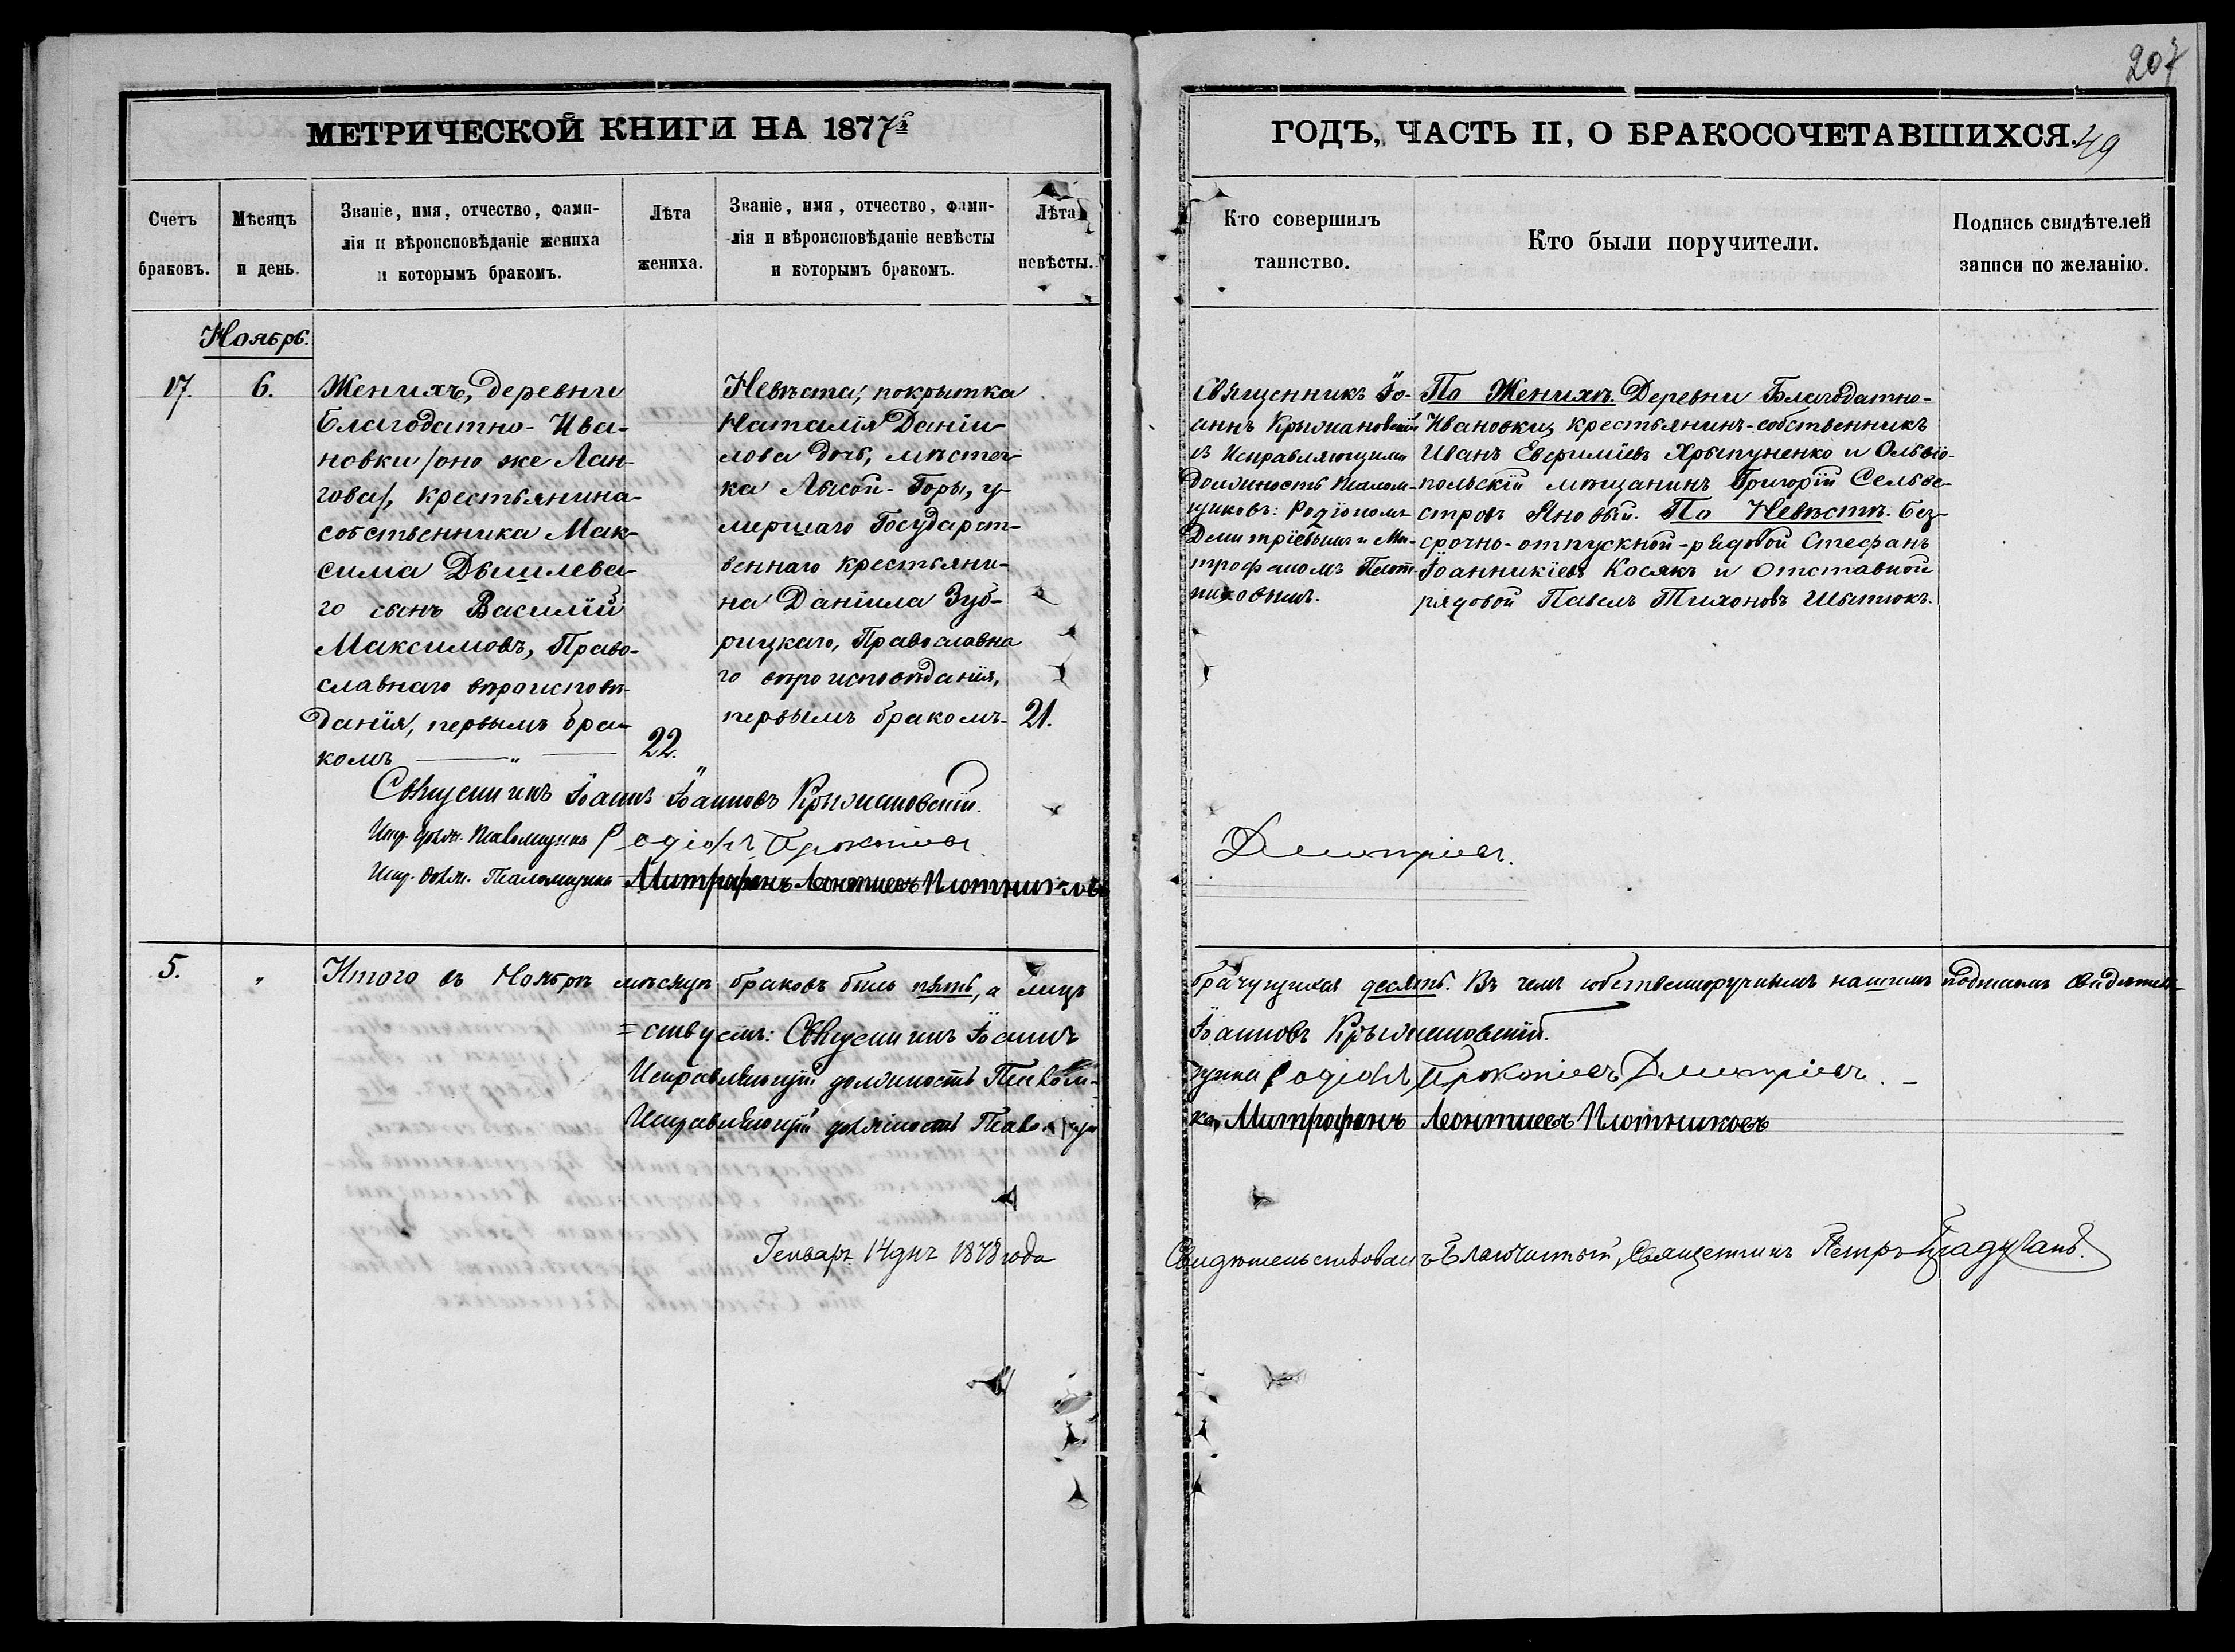 207
МЕТРИЧЕСКОЙ КНИГИ НА 1877й
ГОДЪ, ЧАСТЬ II, О БРАКОСОЧЕТАВШИХСЯ.
49
Счетъ
браковъ.
Мѣсяцъ
и день.
Званіе, имя, отчество, фами-
лія и вѣроисповѣданіе жениха
и которымъ бракомъ.
Лѣта
жениха.
Званіе, имя, отчество, фами-
лія и вѣроисповѣданіе невѣсты
и которымъ бракомъ.
Лѣта
невѣсты.
Кто совершилъ
таинство.
Кто были поручители.
Подпись свидѣтелей
записи по желанію.
Ноябрь.
17.
6.
Женихъ, деревни
Благодатно-Ива-
новки /оно же Лан-
гова/, крестьянина-
собственника Мак-
сима Дышлева-
го сынъ Василій
Максимовъ, Право-
славнаго вѣроисповѣ-
данія, первымъ бра-
комъ
22.
Невѣста, покрытка
Наталія Даніи-
лова дочь, мѣстеч-
ка Лысой-Горы, у-
мершаго Государст-
веннаго крестьяни-
на Даніила Зуб-
рицкаго, Православна
го вѣроисповѣданія,
первымъ бракомъ-
21.
Священникъ Іо-
аннъ Крыжановскій
съ Исправляющими
Должность Псалом-
щиковъ: Родіономъ
Димитріевымъ и Ми-
трофаномъ Плот-
никовымъ.
По Женихѣ. Деревни Благодатно-
Ивановки, крестьянинъ-собственникъ
Иванъ Евфиміевъ Хрыпуненко и Ольвіо-
польскій мѣщанинъ Григорій Сельве-
стровъ Яновый. По Невѣстѣ. Без-
срочно-отпускной-рядовой Стефанъ
Іоанникіевъ Косякъ и Отставной
рядовой Павелъ Тихоновъ Шытюкъ.
Священникъ Іоаннъ Іоанновъ Крыжановскій.
Испр. должн. Псаломщика Родіонъ Прокопіевъ
Димитріевъ.
Испр. должн. Псаломщика Митрофанъ Леонтиевъ Плотниковъ
5.
"
Итого въ Ноябрѣ мѣсяцѣ браковъ было пять, а лицъ
брачущихся десять. Въ чемъ собственноручнымъ нашимъ подписомъ свидѣтель-
=ствуемъ: Священникъ Іоаннъ
Іоанновъ Крыжановскій.
Исправляющій должность Псалом-
щика Родіонъ Прокопіевъ Димитріевъ. –
Исправляющій должность Псаломщи
ка, Митрофанъ Леонтиевъ Плотниковъ
Генварь 14 днь 1878 года
Свидѣтельствовалъ Благочинный, Священникъ Петръ